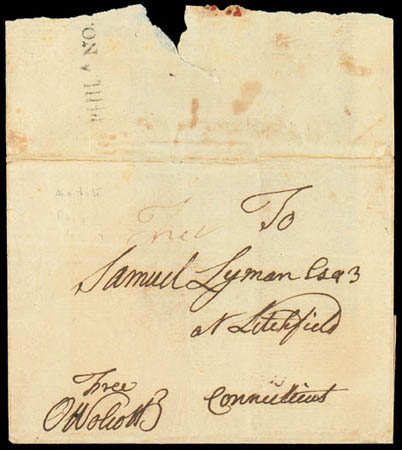 PHILA NO.
Free
To
Samuel Lyman Esq
at Litchfield
Connecticut
Free
O Wolcott